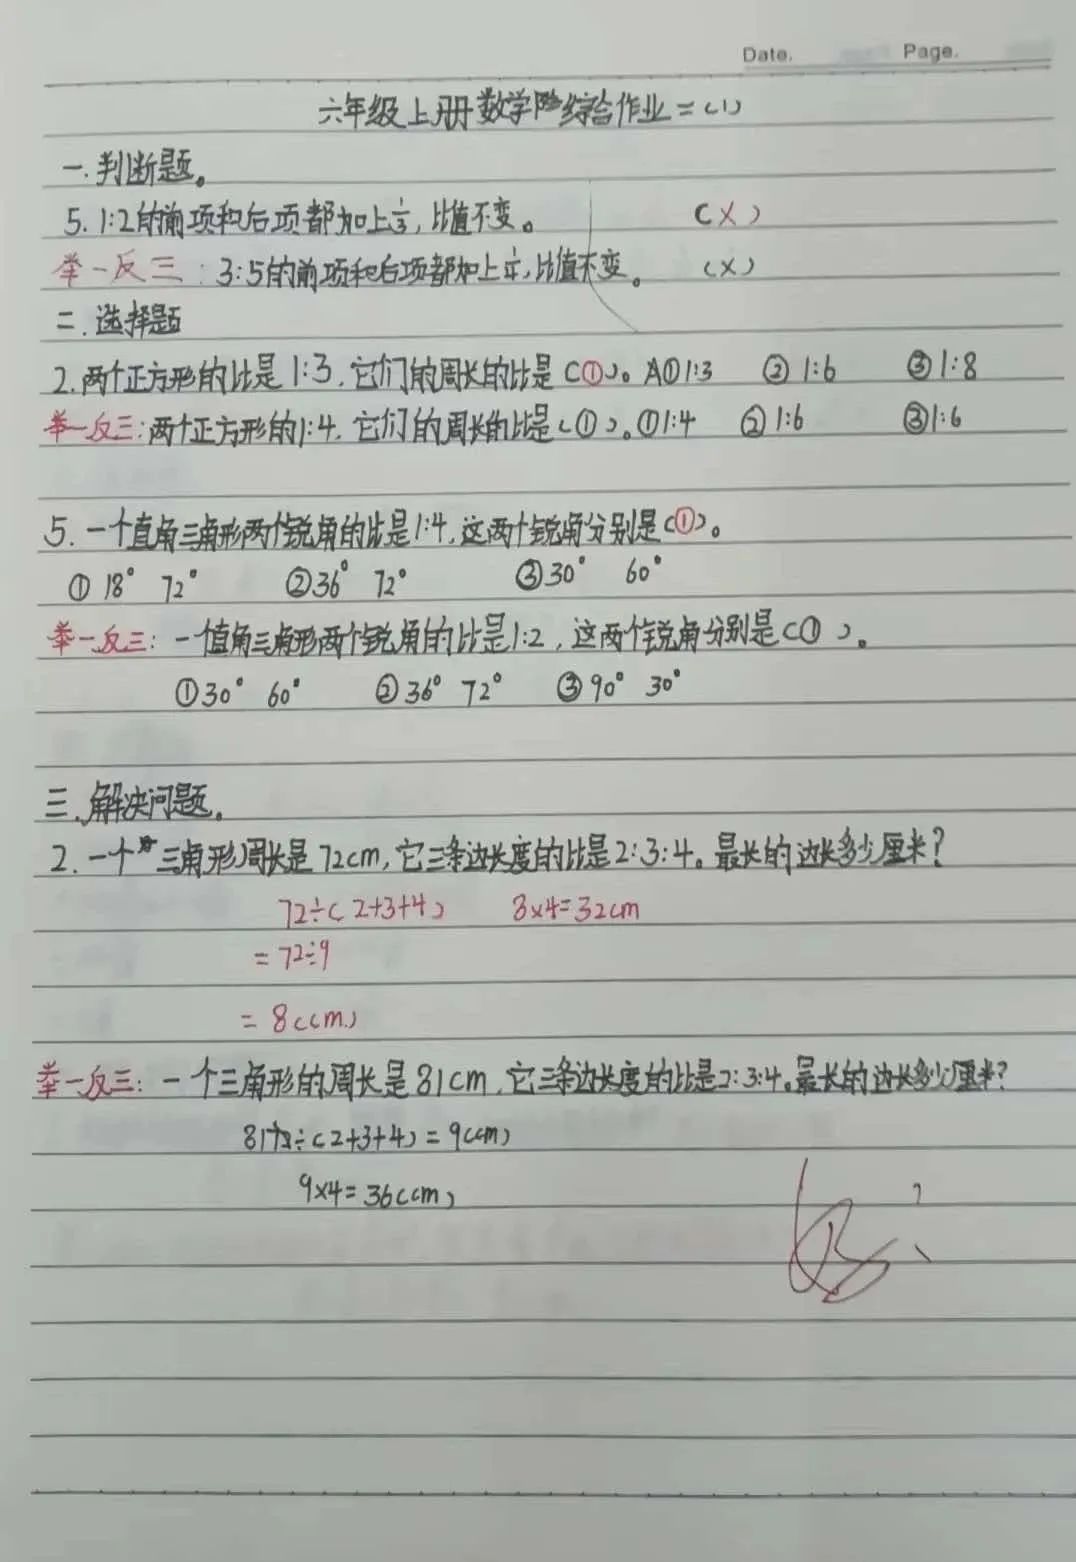 Date. Page.
六年级上册数学综合作业二(1)
一.判断题。
5. 1:2的前项和后项都加上⅓,比值不变。 (X)
举一反三:3:5的前项和后项都加上,比值不变。 (X)
二.选择题
2.两个正方形的比是1:3,它们的周长的比是(①)。A①1:3 ②1:6 ③1:8
举一反三:两个正方形的1:4,它们的周长的比是(①)。①1:4 ②1:6 ③1:6
5.一个直角三角形两个锐角的比是1:4,这两个锐角分别是(①)。
①18° 72° ②36° 72° ③30° 60°
举一反三:一值角三角形两个锐角的比是1:2,这两个锐角分别是(①)。
①30° 60° ②36° 72° ③90° 30°
三.解决问题。
2.一个三角形周长是72cm,它三条边长度的比是2:3:4。最长的边长多少厘米?
72÷(2+3+4) 8×4=32cm
=72÷9
=8(cm)
举一反三:一个三角形的周长是81cm,它三条边长度的比是2:3:4。最长的边长多少厘米?
81÷(2+3+4)=9(cm)
9×4=36(cm)
好